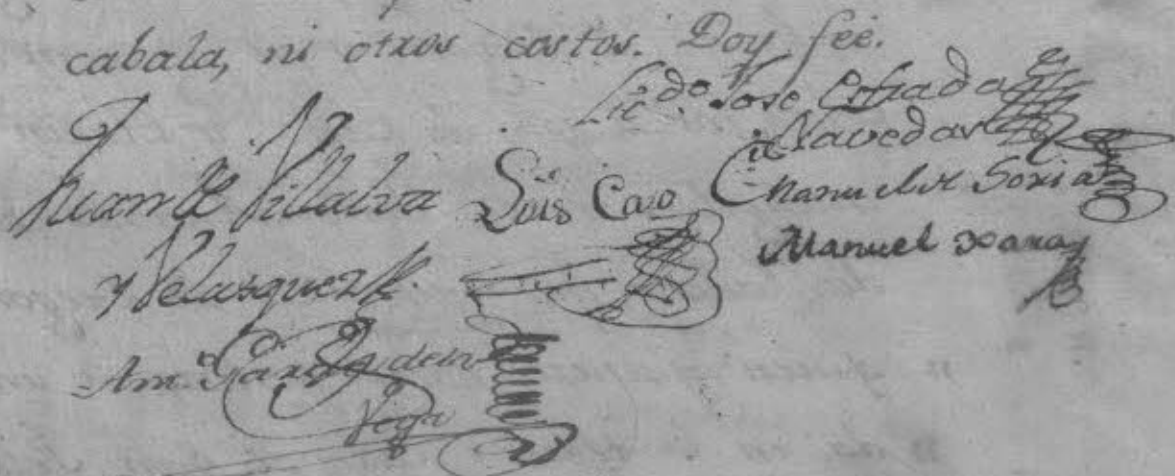 cabala, ni otros costos. Doy feé.
Lic.do Jose Estrada
Navedas
Juan de Villalva
y Velasquez
Luis Caso
Manuel de Soria
Manuel Xaray
Ant.o Garcia de la
Vega